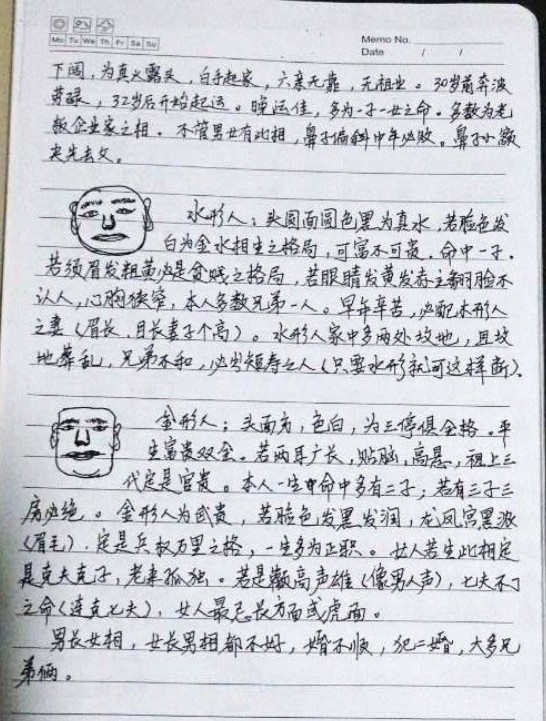 Mo Tu We Th Fr Sa Su
Memo No.
Date / /
下阔，为真火露头，白手起家，六亲无靠，无祖业。30岁前奔波
劳碌，32岁后开始起运。晚运佳，多为一子一女之命。多数为老
板企业家之相。不管男女有此相，鼻子偏斜中年必败。鼻子小额
尖先去父。
水形人：头圆面圆色黑为真水，若脸色发
白为金水相生之格局，可富不可贵，命中一子。
若须眉发粗黄必是贫贱之格局，若眼睛发黄发赤主翻脸不
认人，心胸狭窄，本人多数兄弟一人。早年辛苦，必配木形人
之妻（眉长，目长妻子个高）。水形人家中多两处坟地，且坟
地葬乱，兄弟不和，必出短寿之人（只要水形就可这样断）。
金形人：头面方，色白，为三停俱全格。平
生富贵双全。若两耳广长，贴脑，高悬，祖上三
代定是官贵。本人一生中命中多有二子，若有三子三
房必绝。金形人为武贵，若脸色发黑发润，龙凤宫黑浓
（眉毛），定是兵权万里之格，一生多为正职。女人若生此相定
是克夫克子，老来孤独。若是颧高声雄（像男人声），七夫不了
之命（连克七夫），女人最忌长方面或虎面。
男长女相，女长男相都不好，婚不顺，犯二婚，大多兄
弟俩。